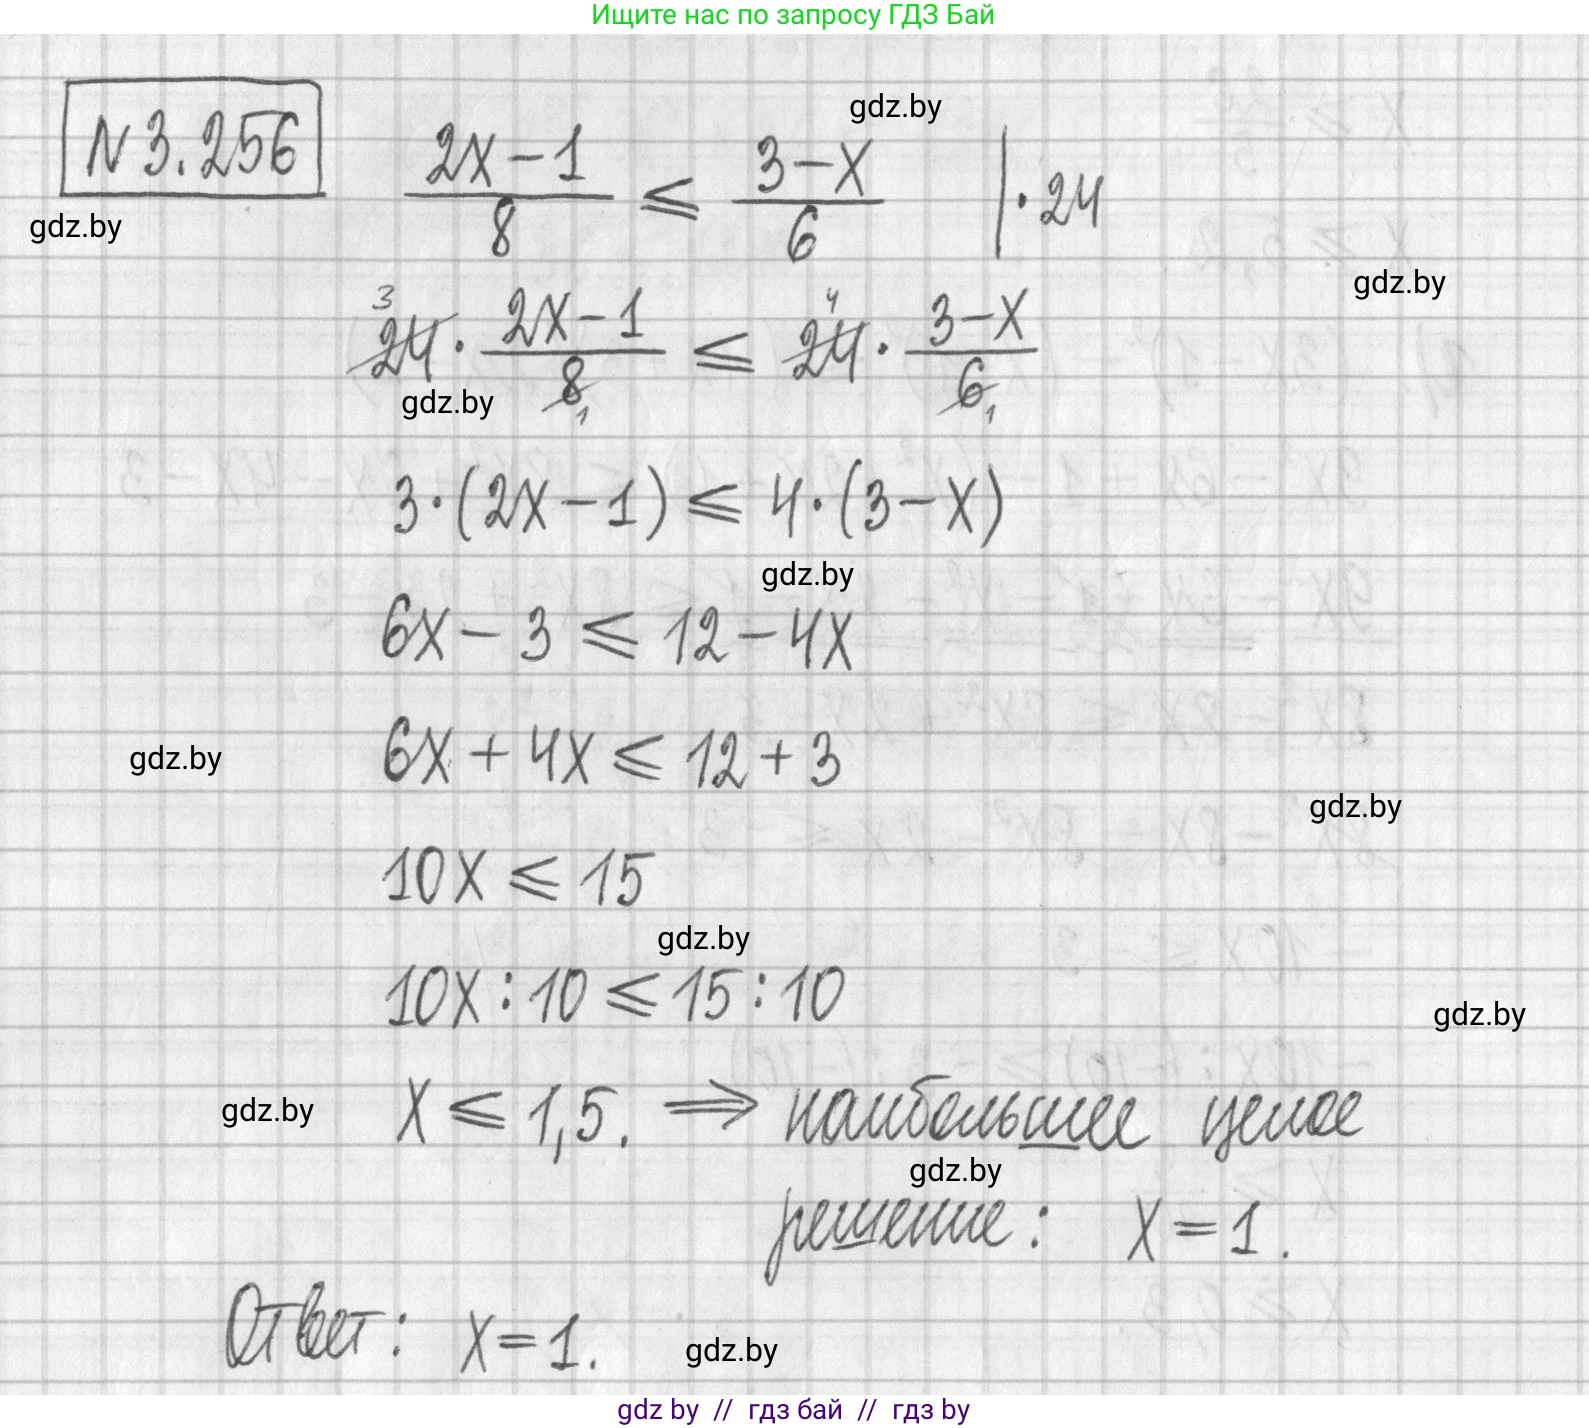 Ищите нас по запросу ГДЗ Бай
gdz.by
N 3.256 (2x-1)/8 ⩽ (3-x)/6 | · 24
gdz.by
gdz.by
³24 · (2x-1)/8₁ ⩽ ⁴24 · (3-x)/6₁
gdz.by
3·(2x-1) ⩽ 4·(3-x)
gdz.by
6x - 3 ⩽ 12 - 4x
6x + 4x ⩽ 12 + 3
gdz.by
gdz.by
10x ⩽ 15
gdz.by
10x : 10 ⩽ 15 : 10
gdz.by
x ⩽ 1,5. ⇒ наибольшее целое
gdz.by
gdz.by
решение: x = 1.
Ответ: x = 1.
gdz.by
gdz by // гдз бай // гдз by